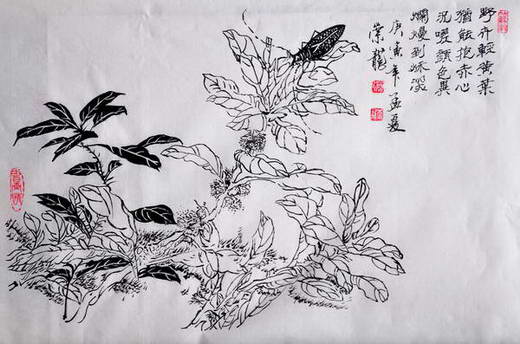 野卉輕黄葉
猶能抱赤心
況顏色異
爛熳到深
庚寅年孟夏
龍